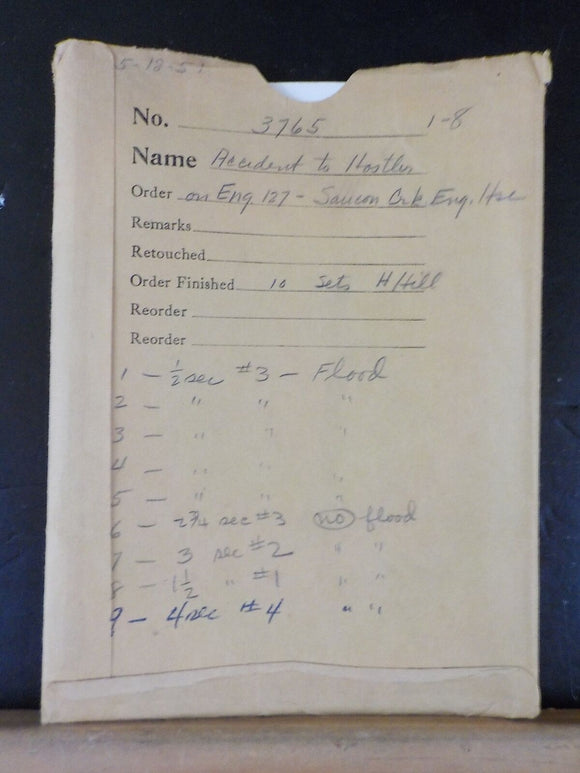 5-12-51
No. 3765 1-8
Name Accident to Hostler
Order on Eng 127 - Saucon Crk Eng. Hse
Remarks
Retouched
Order Finished 10 sets H Hill
Reorder
Reorder
1 - 1/2 sec #3 - Flood
2 - " " "
3 - " " "
4 - " " "
5 - " " "
6 - 2 3/4 sec #3 no flood
7 - 3 sec #2 " "
8 - 1 1/2 " #1 " "
9 - 4 sec #4 " "